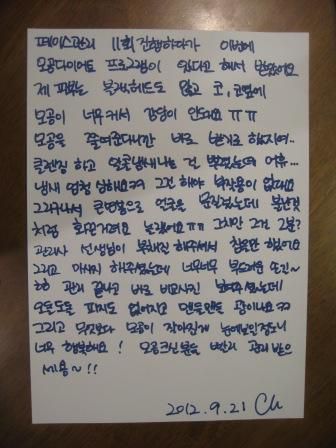 페이스관리 11회 진행하다가 이번에
모공다이어트 프로그램이 있다고 해서 받았어요
제 피부는 블랙헤드도 많고 코, 코옆에
모공이 너무커서 감당이 안되요 ㅠㅠ
모공을 줄여준다니깐 바로 받기로 했지여..
클렌징 하고 얼굴냄새나는 건 발랐는데 어휴...
냄새 엄청 심해요ㅋㅋ 그건 해야 부작용이 없대요
그러구나서 큰면봉으로 얼굴을 문질렀는데 불난것
처럼 화끈거려요 눈물났어요ㅠㅠ 그치만 그건 2분?
관리사 선생님이 부채질 해주셔서 참을만 했어요
그리고 마사지 해주셨는데 너무너무 부드러운 손길~
ㅎㅎ 관리 끝나고 바로 비교사진 보여주셨는데
오돌도돌 피지도 없어지고 맨들맨들 광이나요ㅋㅋ
그리고 무엇보다 모공이 작아진게 눈에보일정도니
너무 행복해요! 모공크신분들 빨리 관리 받으
세용~!!
2012.9.21